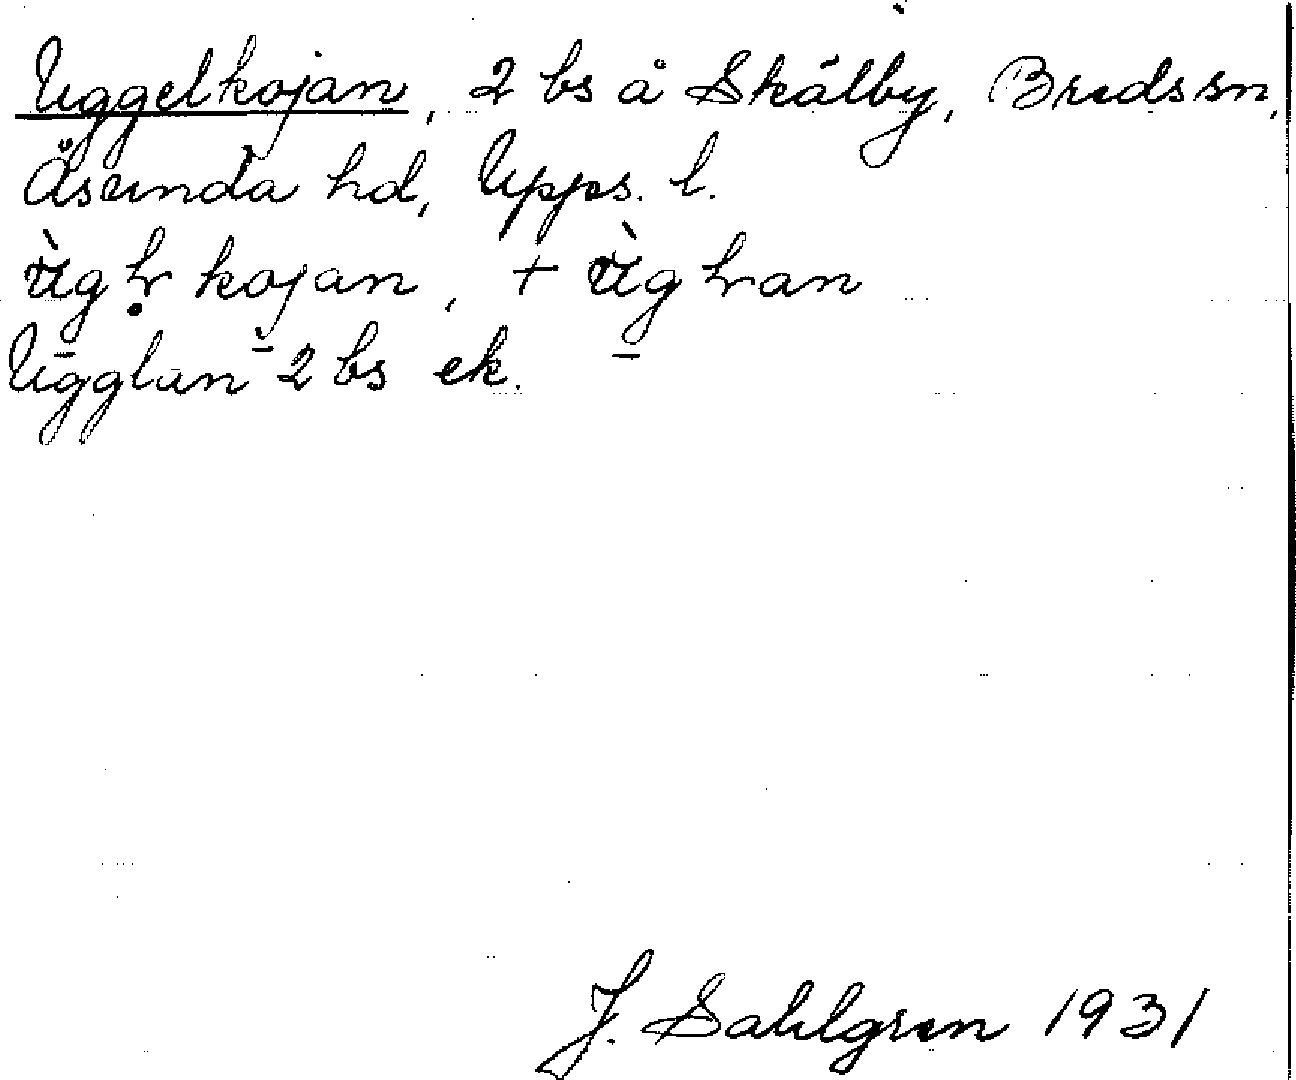 Uggelkojan, 2 bs å Skälby, Breds sn,
Åsunda hd, Upps. l.
Ugglan 2 bs ek.
J. Sahlgren 1931